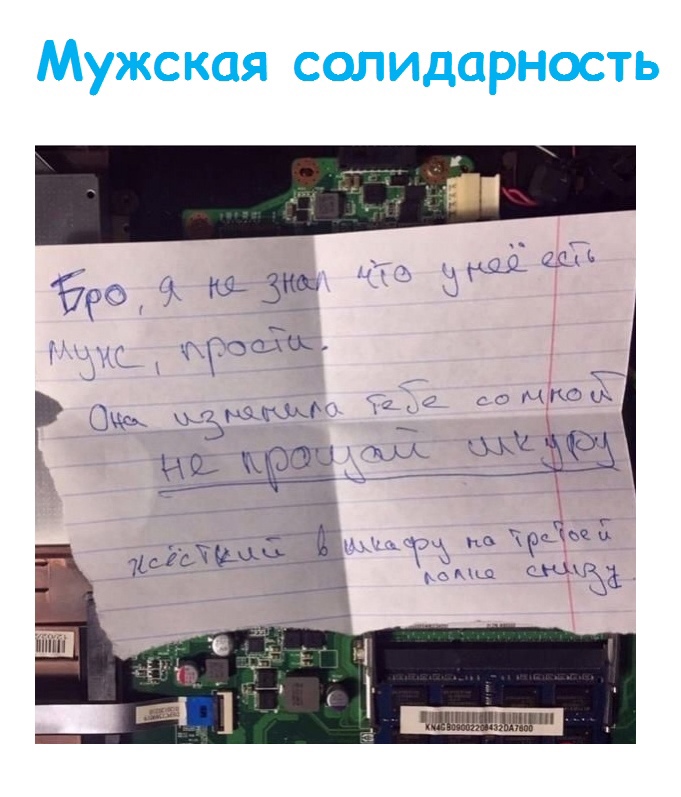 Мужская солидарность
Бро, я не знал что у неё есть
муж, прости.
Она изменила тебе со мной
не прощай шкуру
жёсткий в шкафу на третьей
полке снизу.
KN4GB09002208432DA7600